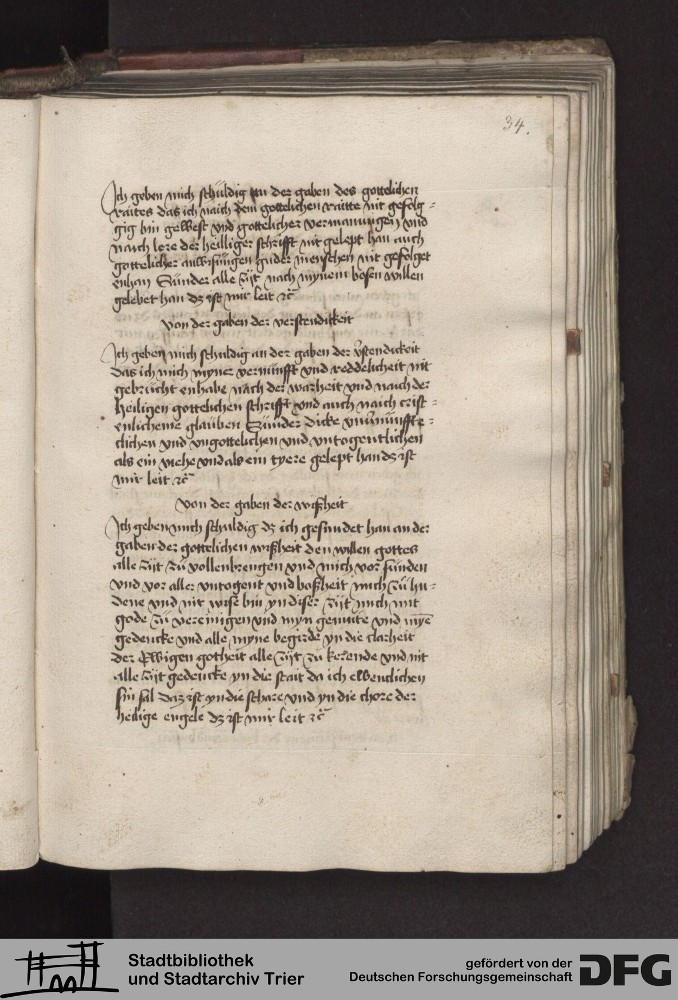 34.
Ich geben mich schuldig an der gaben des gottelichen
raites das ich naich dem gottelichen raitte nit gefolg=
gig bin gewest vnd gottelicher vermanungen vnd
naich lere der heilliger schrifft nit gelept han auch
gottelicher anwisungen guder menschen nit gefolget
enhan Sunder alle zijt nach mynem bosen willen
gelebet han dz ist mir leit ꝛc
Von der gaben der verstendickeit
Ich geben mich schuldig an der gaben der v̓stendickeit
das ich mich myner vernunfft vnd reddelicheit nit
gebrucht enhabe nach der warheit vnd naich der
heiligen gottelichen schrifft vnd auch naich crist=
enlicheme glauben Sunder dicke vnu̓nunffte=
clichen vnd vngottelichen vnd vntogentlichen
als ein viehe vnd als ein tyere gelept han dz ist
mir leit ꝛc
Von der gaben der wißheit
Ich geben mich schuldig dz ich gesundet han an der
gaben der gottelichen wißheit den willen gottes
alle zijt zu vollenbrengen vnd mich vor sunden
vnd vor aller vntogent vnd boßheit mich zu hu=
dene vnd nit wise bin yn diser zijt mich mit
gode zu vereinigen vnd myn gemute vnd myē
gedencke vnd alle myne begirde yn die clarheit
der Ewigen gotheit alle zijt zu kerende vnd nit
alle zijt gedencke yn die stait da ich ewenclichen
sin sal daz ist yn die schare vnd yn die chore der
heilige engele dz ist mir leit ꝛc
Stadtbibliothek
und Stadtarchiv Trier
gefördert von der
Deutschen Forschungsgemeinschaft
DFG